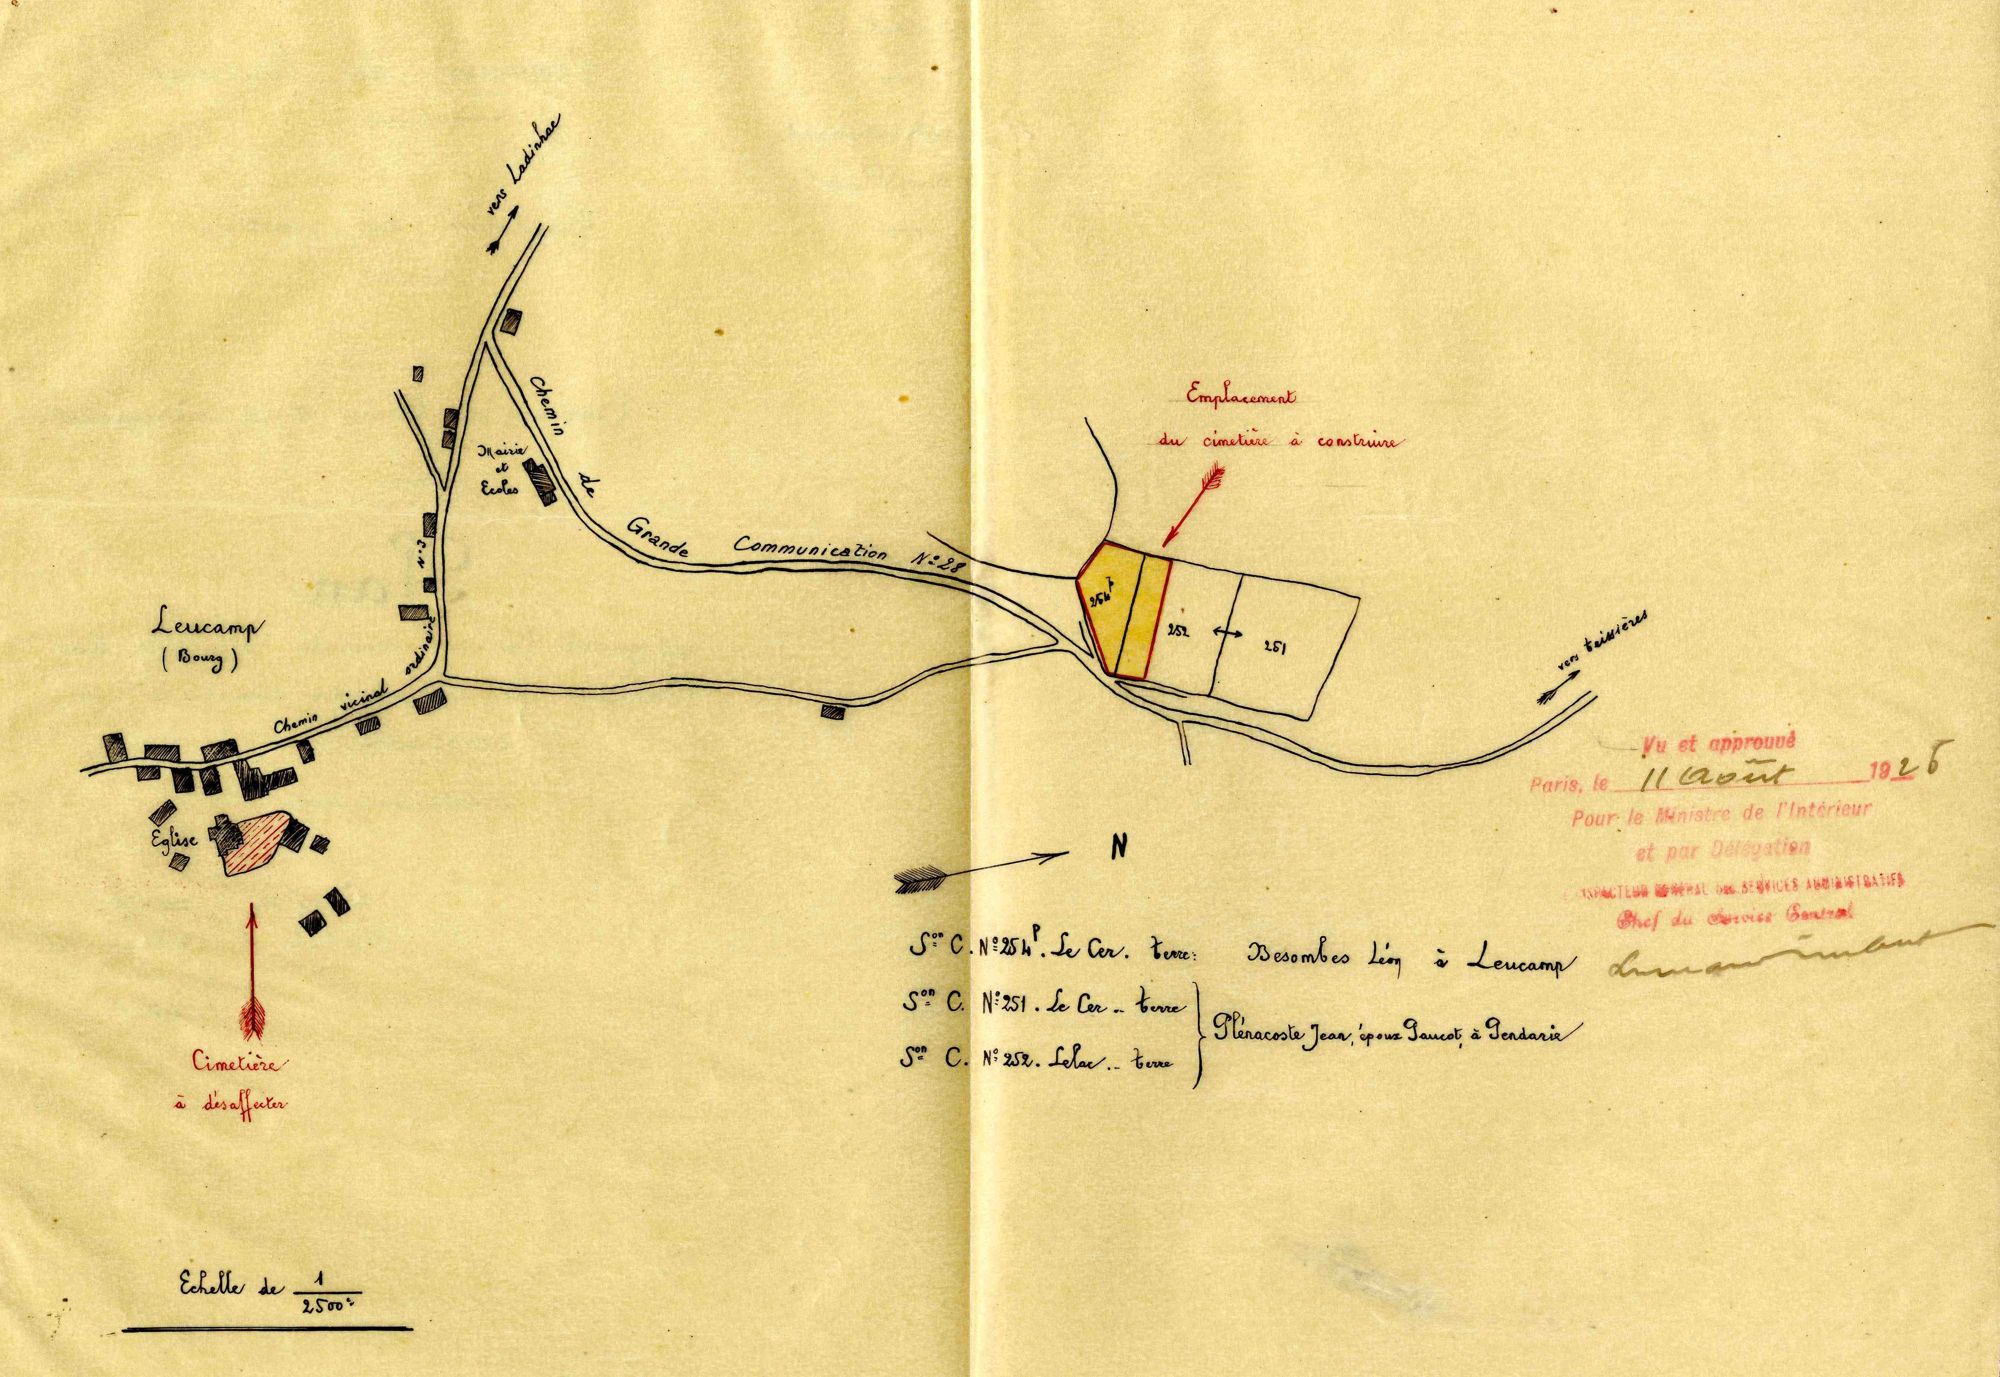 vers Ladinhac
Chemin de Grande Communication Nº 28
Mairie
et
Ecoles
Nº 3
Chemin vicinal ordinaire
Leucamp
( Bourg )
Eglise
Cimetière
à désaffecter
Emplacement
du cimetière à construire
254ᵖ
252
251
vers teissières
N
Vu et approuvé
Paris, le 11 Août 1926
Pour le Ministre de l'Intérieur
et par Délégation
INSPECTEUR GÉNÉRAL DES SERVICES ADMINISTRATIFS
Chef du Service Central
Sᵒⁿ C. Nº 254ᵖ. Le Cer. terre: Besombes Léon à Leucamp
Sᵒⁿ C. Nº 251. Le Cer .. terre
Plénacoste Jean, époux Paucot, à Pendarie
Sᵒⁿ C. Nº 252. Lelac .. terre
Echelle de 1/2500ᵉ